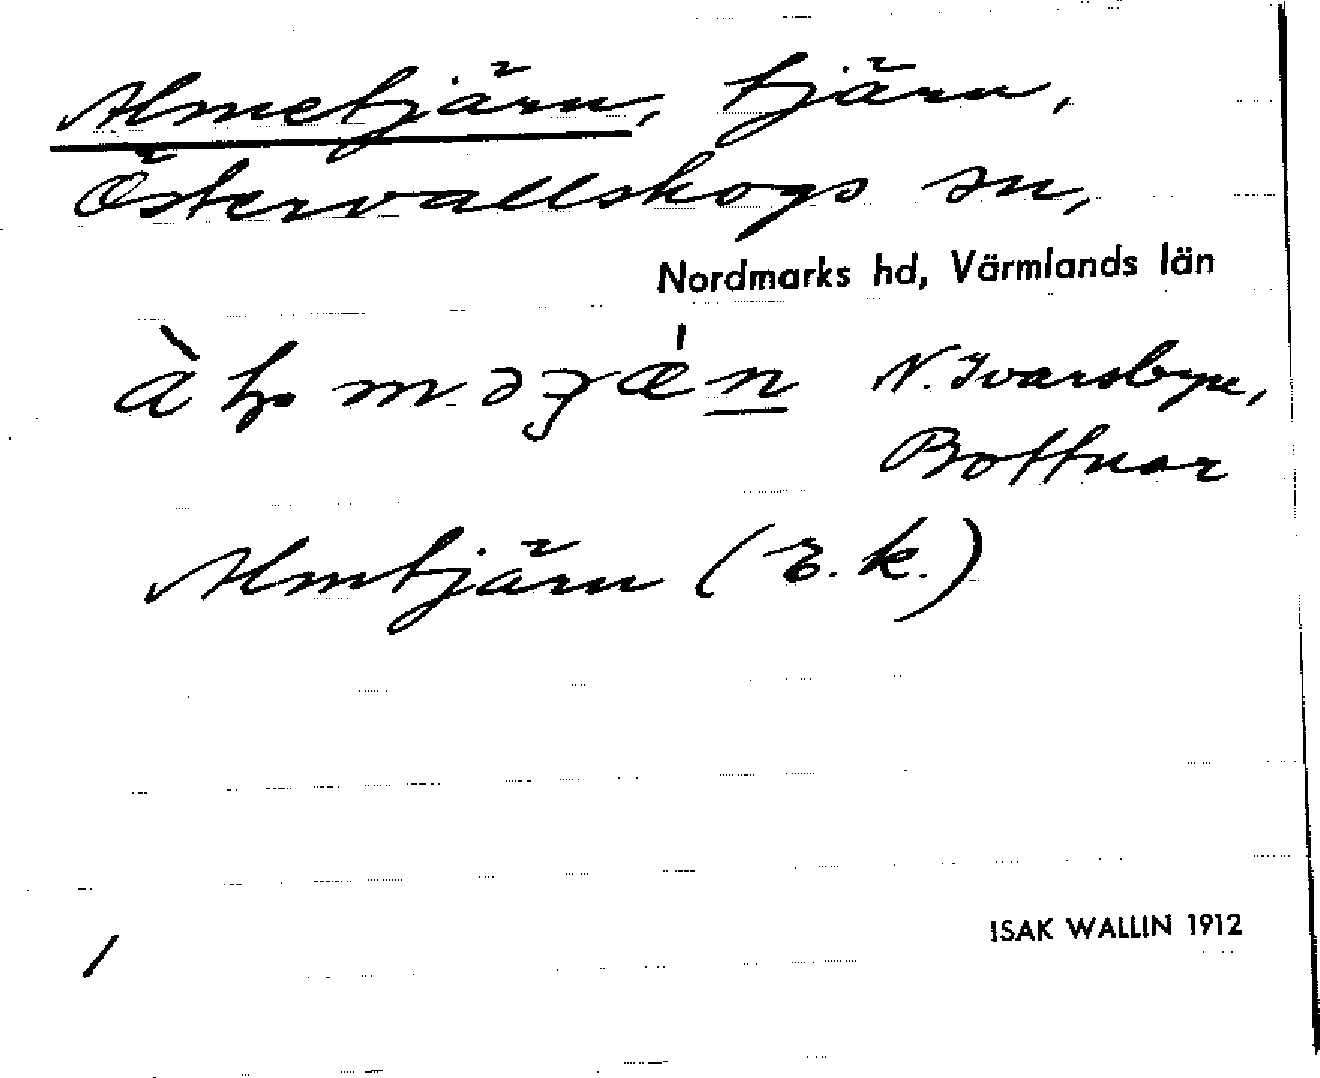 Almetjärn, tjärn,
Östervallskogs sn,
Nordmarks hd, Värmlands län
N. Ivarsbyn,
Bottnar
Almtjärn (E.k.)
ISAK WALLIN 1912
1